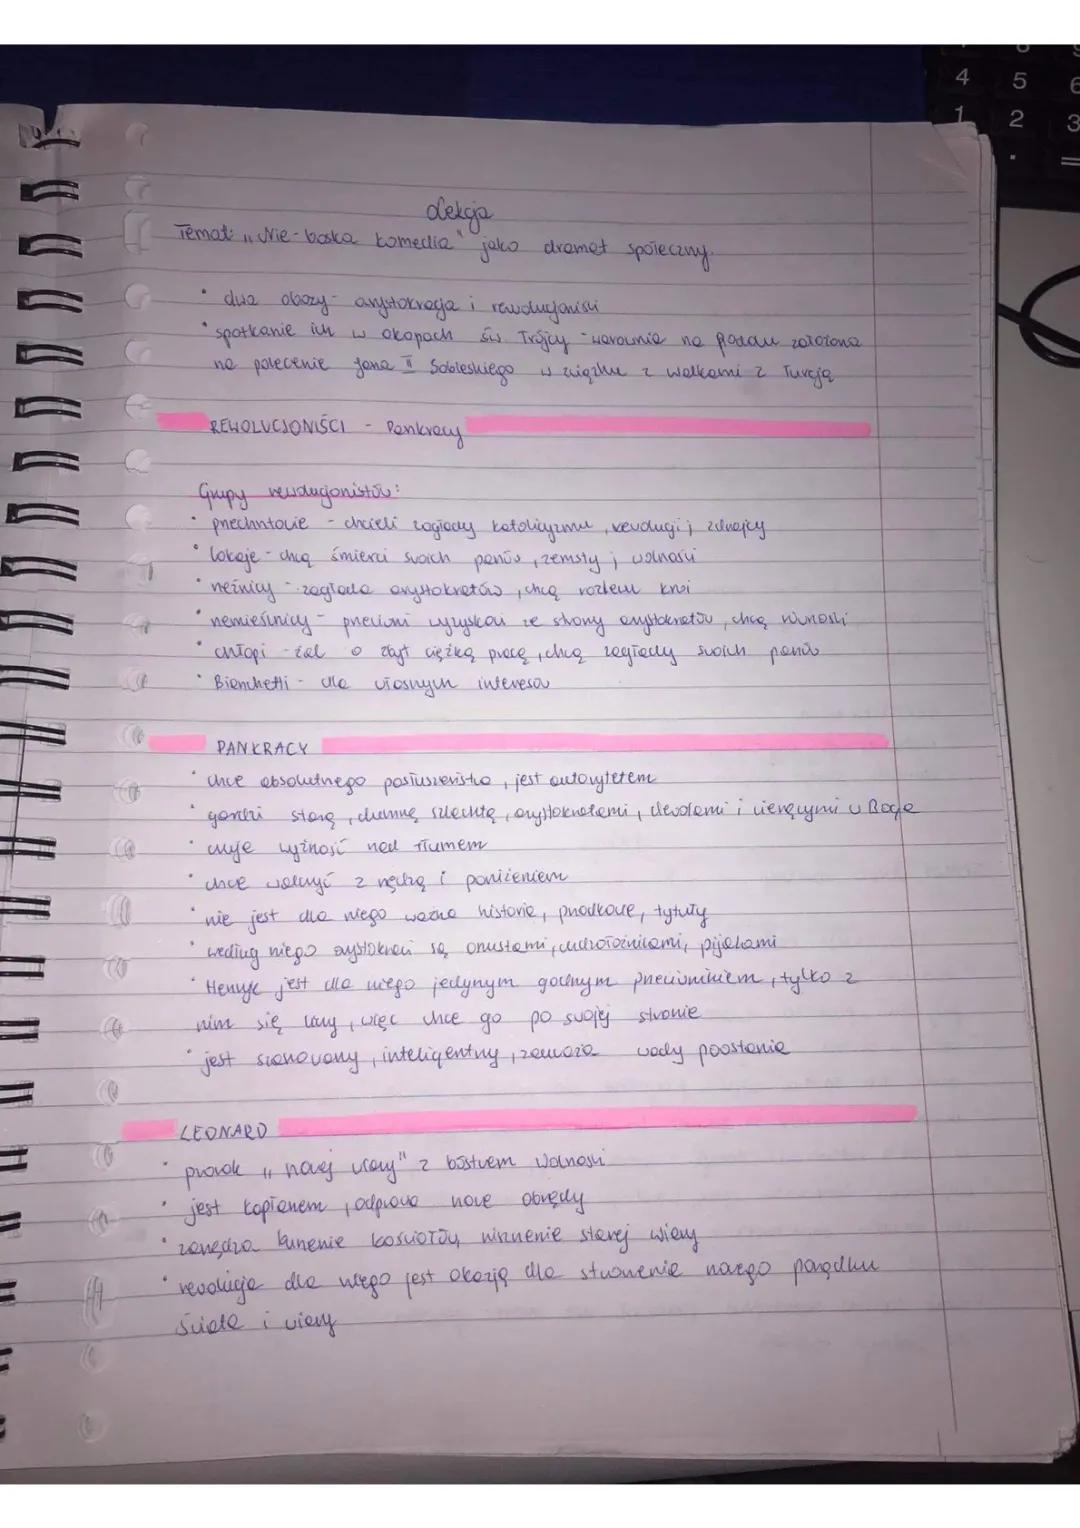 Lekcja
Temat: „Nie-boska komedia" jako dramat społeczny.
• dwa obozy - arystokracja i rewolucjoniści
• spotkanie ich w okopach św. Trójcy - warownia na Podolu założona
na polecenie Jana II Sobieskiego w związku z walkami z Turcją
REWOLUCJONIŚCI - Pankracy
Grupy rewolucjonistów:
• przechrztowie - chcieli zagłady katolicyzmu, rewolucji; zdrajcy
• lokaje - chcą śmierci swoich panów, zemsty i wolności
• rzeźnicy - zagłada arystokratów, chcą rozlewu krwi
• rzemieślnicy - przeciwni wyzyskowi ze strony arystokratów, chcą równości
• chłopi - żal o zbyt ciężką pracę, chcą zagłady swoich panów
• Bianchetti - dla własnych interesów
PANKRACY
• chce absolutnego posłuszeństwa, jest autorytetem
• gardzi starą, dumną szlachtą, arystokratami, i wierzącymi w Boga
• czuje wyższość nad tłumem
• chce walczyć z nędzą i poniżeniem
• nie jest dla niego ważna historia, przodkowie, tytuły
• według niego arystokraci są oszustami, cudzołożnikami, pijakami
• Henryk jest dla niego jedynym godnym przeciwnikiem, tylko z
nim się liczy, więc chce go po swojej stronie
• jest szanowany, inteligentny, zauważa wady powstania
LEONARD
• prorok „nowej wiary" z bóstwem wolności
• jest kapłanem, odprawia nowe obrzędy
• zarządza burzenie kościołów, niszczenie starej wiary
• rewolucja dla niego jest okazją dla stworzenia nowego porządku
świata i wiary
4 5 6
1 2 3
. =